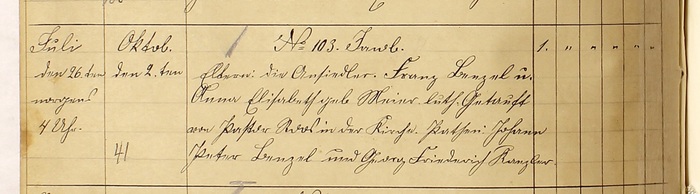 Juli Oktob. № 103. Jacob. 1. " " " " "
den 26.ten den 2.ten Eltern: die Ansiedler. Franz Benzel u.
morgens Anna Elisabeth geb Meier luth. Getauft
4 Uhr. von Pastor in der Kirche. Pathen: Johann
41 Peter Benzel und Georg Friederich Kanzler